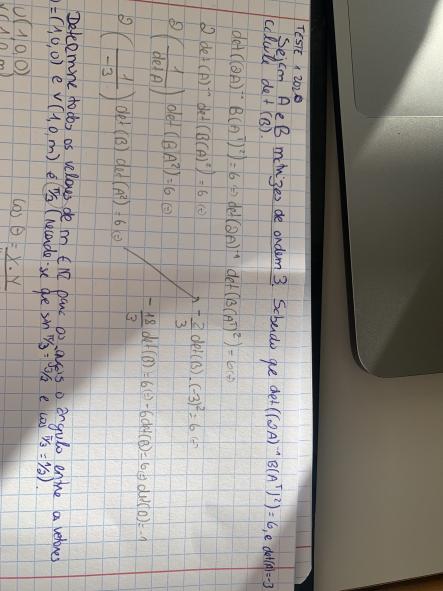 TESTE 1 2020
Sejam A e B matrizes de ordem 3. Sabendo que det((2A)⁻¹ B(Aᵀ)²) = 6, e det(A) = -3
calcule det(B).
det((2A)⁻¹ B(Aᵀ)²) = 6 ⇔ det(2A)⁻¹ det(B(Aᵀ)²) = 6 ⇔
2 det(A)⁻¹ det(B(A)²) = 6 ⇔
2 (1/det A) det(BA²) = 6 ⇔
2 (1/-3) det(B) det(A²) = 6 ⇔
-2/3 det(B) · (-3)² = 6 ⇔
-18/3 det(B) = 6 ⇔ -6 det(B) = 6 ⇔ det(B) = -1
Determine todos os valores de m ∈ ℝ para os quais o ângulo entre os vetores
= (1,0,0) e v(1,0,m) é π/3 (recorde-se que sin π/3 = √3/2 e cos π/3 = 1/2).
U(1,0,0)
V(1,0,m)
cos θ = X · Y